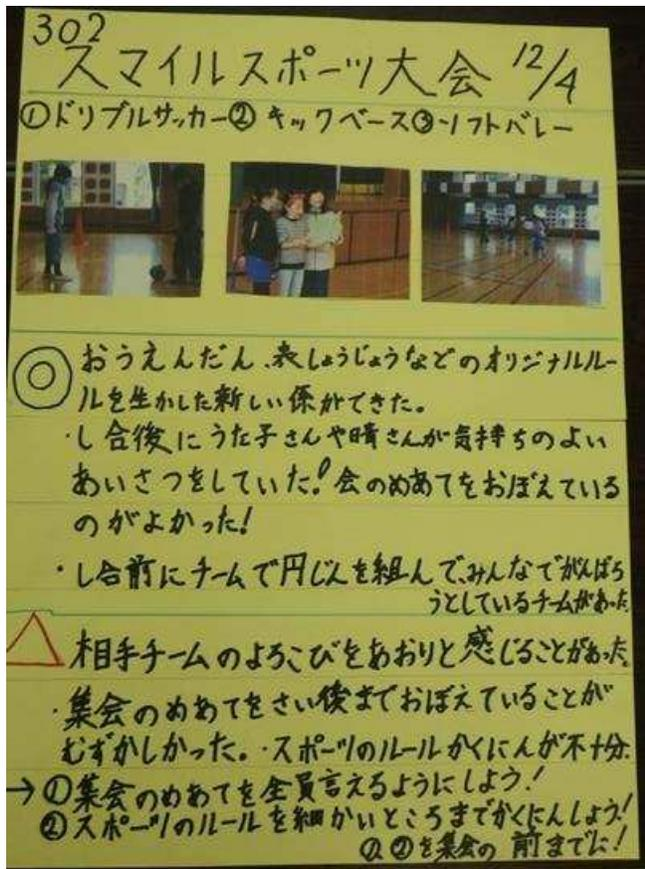 302
スマイルスポーツ大会 12/4
①ドリブルサッカー②キックベース③ソフトバレー
◎おうえんだん、表しょうじょうなどのオリジナルルー
ルを生かした新しい係ができた。
・し合後にうた子さんや晴さんが気持ちのよい
あいさつをしていた!会のめあてをおぼえている
のがよかった!
・し合前にチームで円じんを組んで、みんなでがんばろ
うとしているチームがあった。
△相手チームのよろこびをあおりと感じることがあった。
・集会のめあてをさい後までおぼえていることが
むずかしかった。・スポーツのルールかくにんが不十分.
→①集会のめあてを全員言えるようにしよう!
②スポーツのルールを細かいところまでかくにんしよう!
①②を集会の前までに!